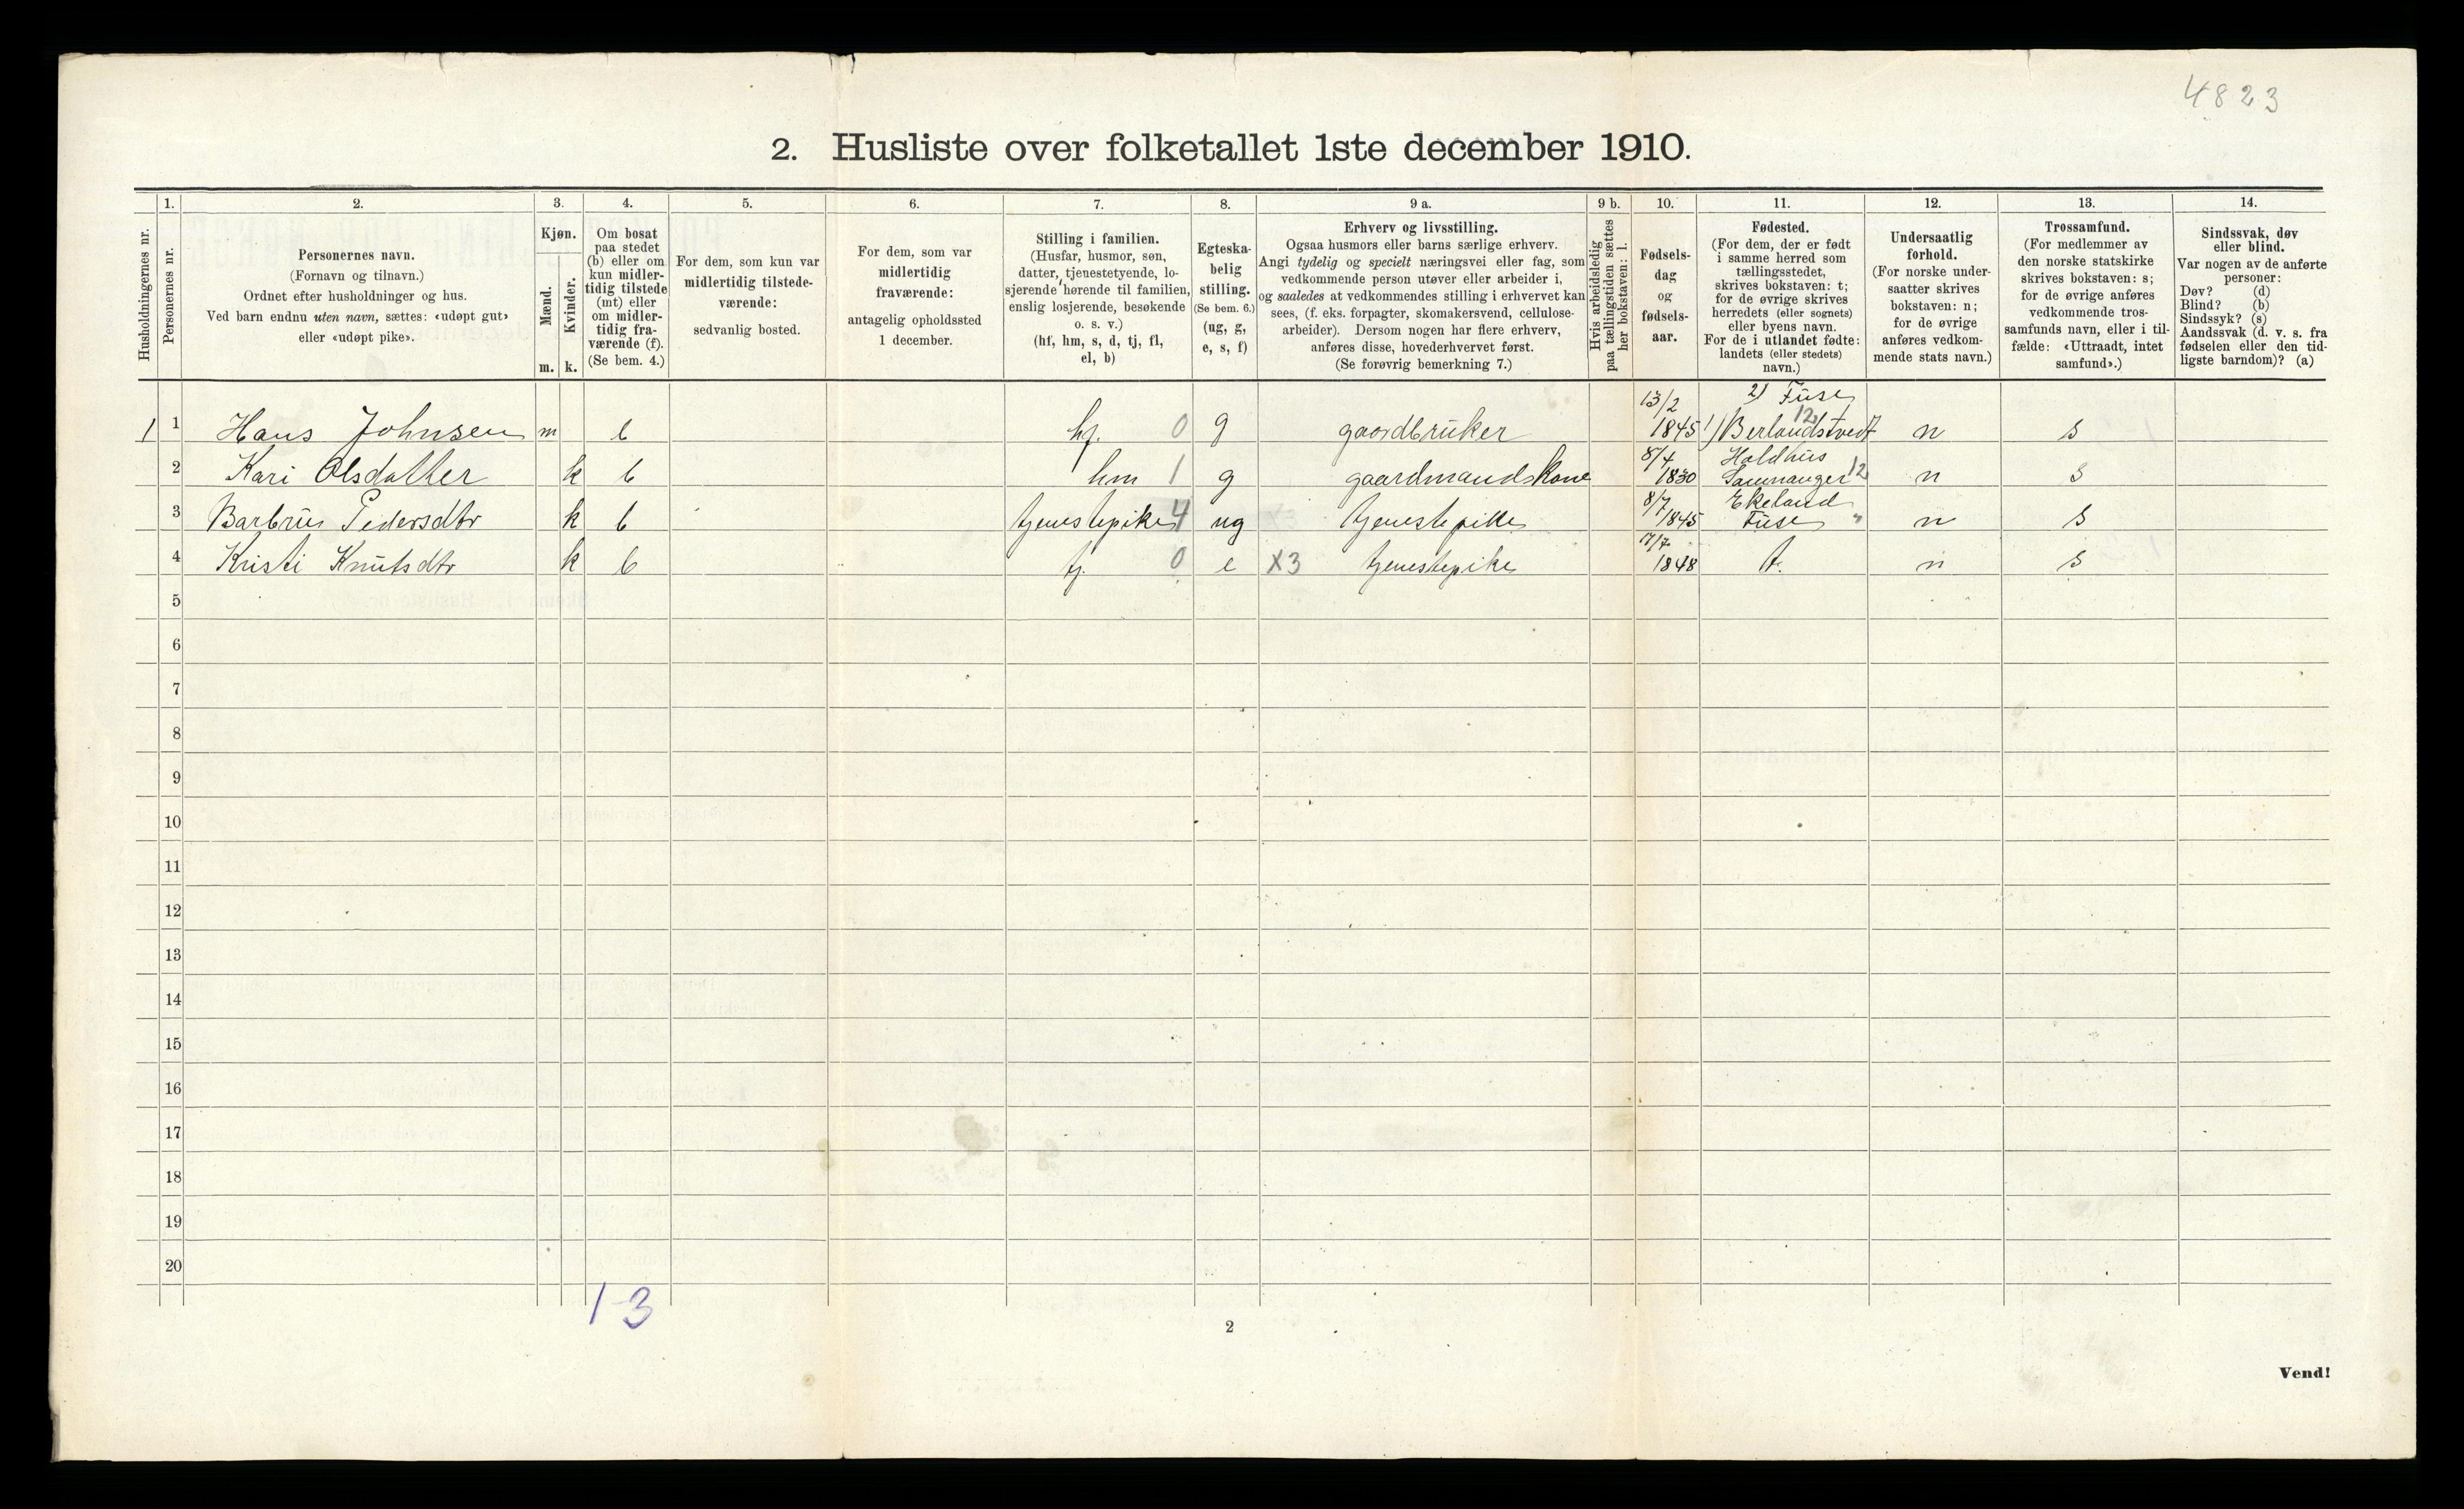 4823
2. Husliste over folketallet 1ste december 1910.
Husholdningernes nr.
1.
Personernes nr.
2.
Personernes navn.
(Fornavn og tilnavn.)
Ordnet efter husholdninger og hus.
Ved barn endnu uten navn, sættes: «udøpt gut»
eller «udøpt pike».
3.
Kjøn.
Mænd.
Kvinder.
m. k.
4.
Om bosat
paa stedet
(b) eller om
kun midler-
tidig tilstede
(mt) eller
om midler-
tidig fra-
værende (f).
(Se bem. 4.)
5.
For dem, som kun var
midlertidig tilstede-
værende:
sedvanlig bosted.
6.
For dem, som var
midlertidig
fraværende:
antagelig opholdssted
1 december.
7.
Stilling i familien.
(Husfar, husmor, søn,
datter, tjenestetyende, lo-
sjerende hørende til familien,
enslig losjerende, besøkende
o. s. v.)
(hf, hm, s, d, tj, fl,
el, b)
8.
Egteska-
belig
stilling.
(Se bem. 6.)
(ug, g,
e, s, f)
9 a.
Erhverv og livsstilling.
Ogsaa husmors eller barns særlige erhverv.
Angi tydelig og specielt næringsvei eller fag, som
vedkommende person utøver eller arbeider i,
og saaledes at vedkommendes stilling i erhvervet kan
sees, (f. eks. forpagter, skomakersvend, cellulose-
arbeider). Dersom nogen har flere erhverv,
anføres disse, hovederhvervet først.
(Se forøvrig bemerkning 7.)
9 b.
Hvis arbeidsledig
paa tællingstiden sættes
her bokstaven: l.
10.
Fødsels-
dag
og
fødsels-
aar.
11.
Fødested.
(For dem, der er født
i samme herred som
tællingsstedet,
skrives bokstaven: t;
for de øvrige skrives
herredets (eller sognets)
eller byens navn.
For de i utlandet fødte:
landets (eller stedets)
navn.)
12.
Undersaatlig
forhold.
(For norske under-
saatter skrives
bokstaven: n;
for de øvrige
anføres vedkom-
mende stats navn.)
13.
Trossamfund.
(For medlemmer av
den norske statskirke
skrives bokstaven: s;
for de øvrige anføres
vedkommende tros-
samfunds navn, eller i til-
fælde: «Uttraadt, intet
samfund».)
14.
Sindssvak, døv
eller blind.
Var nogen av de anførte
personer:
Døv? (d)
Blind? (b)
Sindssyk? (s)
Aandssvak (d. v. s. fra
fødselen eller den tid-
ligste barndom)? (a)
13/2 2) Fuse
1 1 Hans Johnsen m b hf. 0 g gaardbruker 1845 1) Berlandstvedt 12 n s
8/4 Holdhus
2 Kari Olsdatter k b hm 1 g gaardmandskone 1830 Samnanger 12 n s
8/7 Ekeland
3 Barbru Pedersdtr k b tjenestepike 4 ug tjenestepike 1845 Fuse " n s
17/7
4 Kristi Knutsdtr k b tj. 0 e X3 tjenestepike 1848 t. n s
5
6
7
8
9
10
11
12
13
14
15
16
17
18
19
20
1-3
2
Vend!